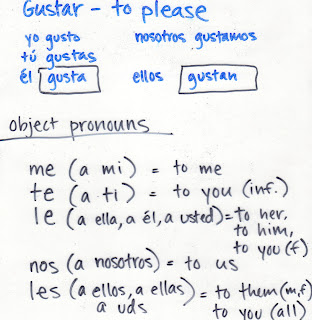 Gustar - to please
yo gusto nosotros gustamos
tú gustas
él gusta ellos gustan
object pronouns
me (a mi) = to me
te (a ti) = to you (inf.)
le (a ella, a él, a usted) = to her,
to him,
to you (f)
nos (a nosotros) = to us
les (a ellos, a ellas) = to them (m,f)
a uds to you (all)